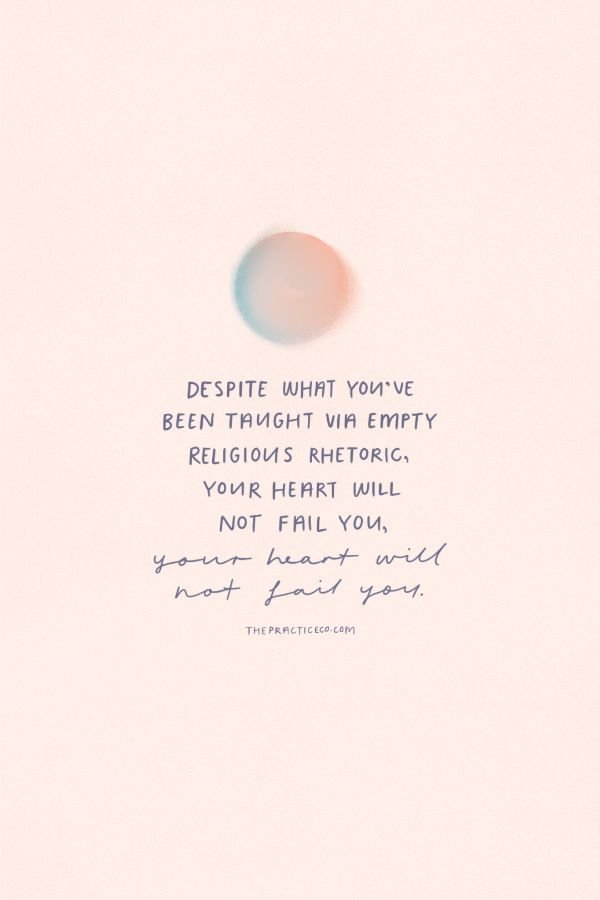 DESPITE WHAT YOU'VE
BEEN TAUGHT VIA EMPTY
RELIGIOUS RHETORIC,
YOUR HEART WILL
NOT FAIL YOU,
your heart will
not fail you.
THEPRACTICECO.COM